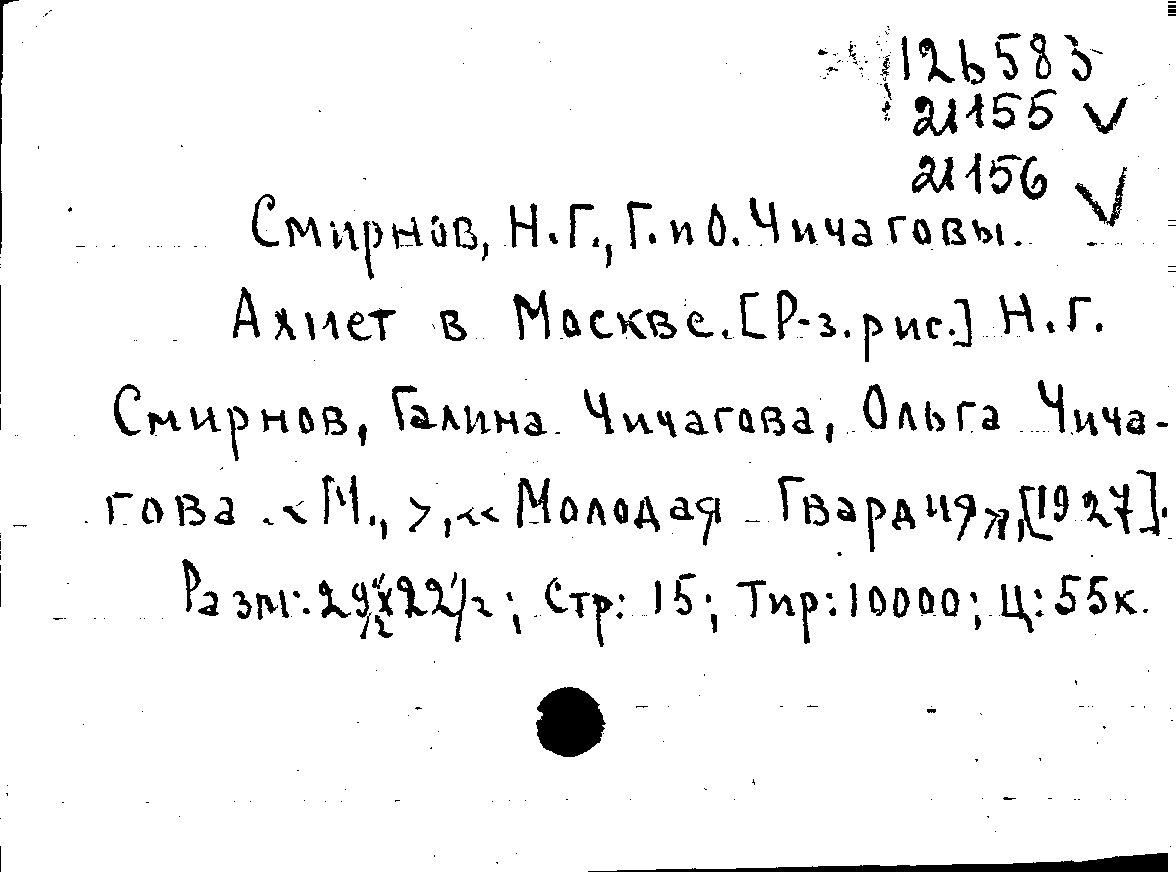 126583
21155 ✓
21156 ✓
Смирнов, Н.Г., Г. и О. Чичаговы.
Ахмет в Москве. [Р-з. рис.] Н.Г.
Смирнов, Галина Чичагова, Ольга Чича-
гова. <М., >, «Молодая Гвардия», [1927].
Разм: 29½x22½; Стр: 15; Тир: 10000; Ц: 55к.